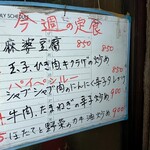 LY SCHEDUL
今週の定食
麻婆豆腐 850
玉子、ひき肉、キクラゲの炒め 850
パイペンルー
シャブシャブ豚肉のにんにく辛子タレかけ
4.牛肉、たまねぎの辛子炒め 900
5.ほたてと野菜のカキ油炒め 900